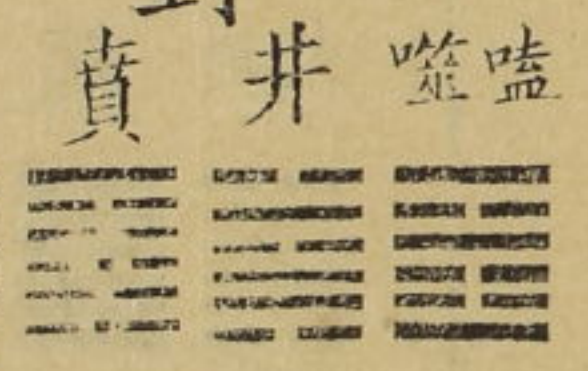 賁 井 噬嗑